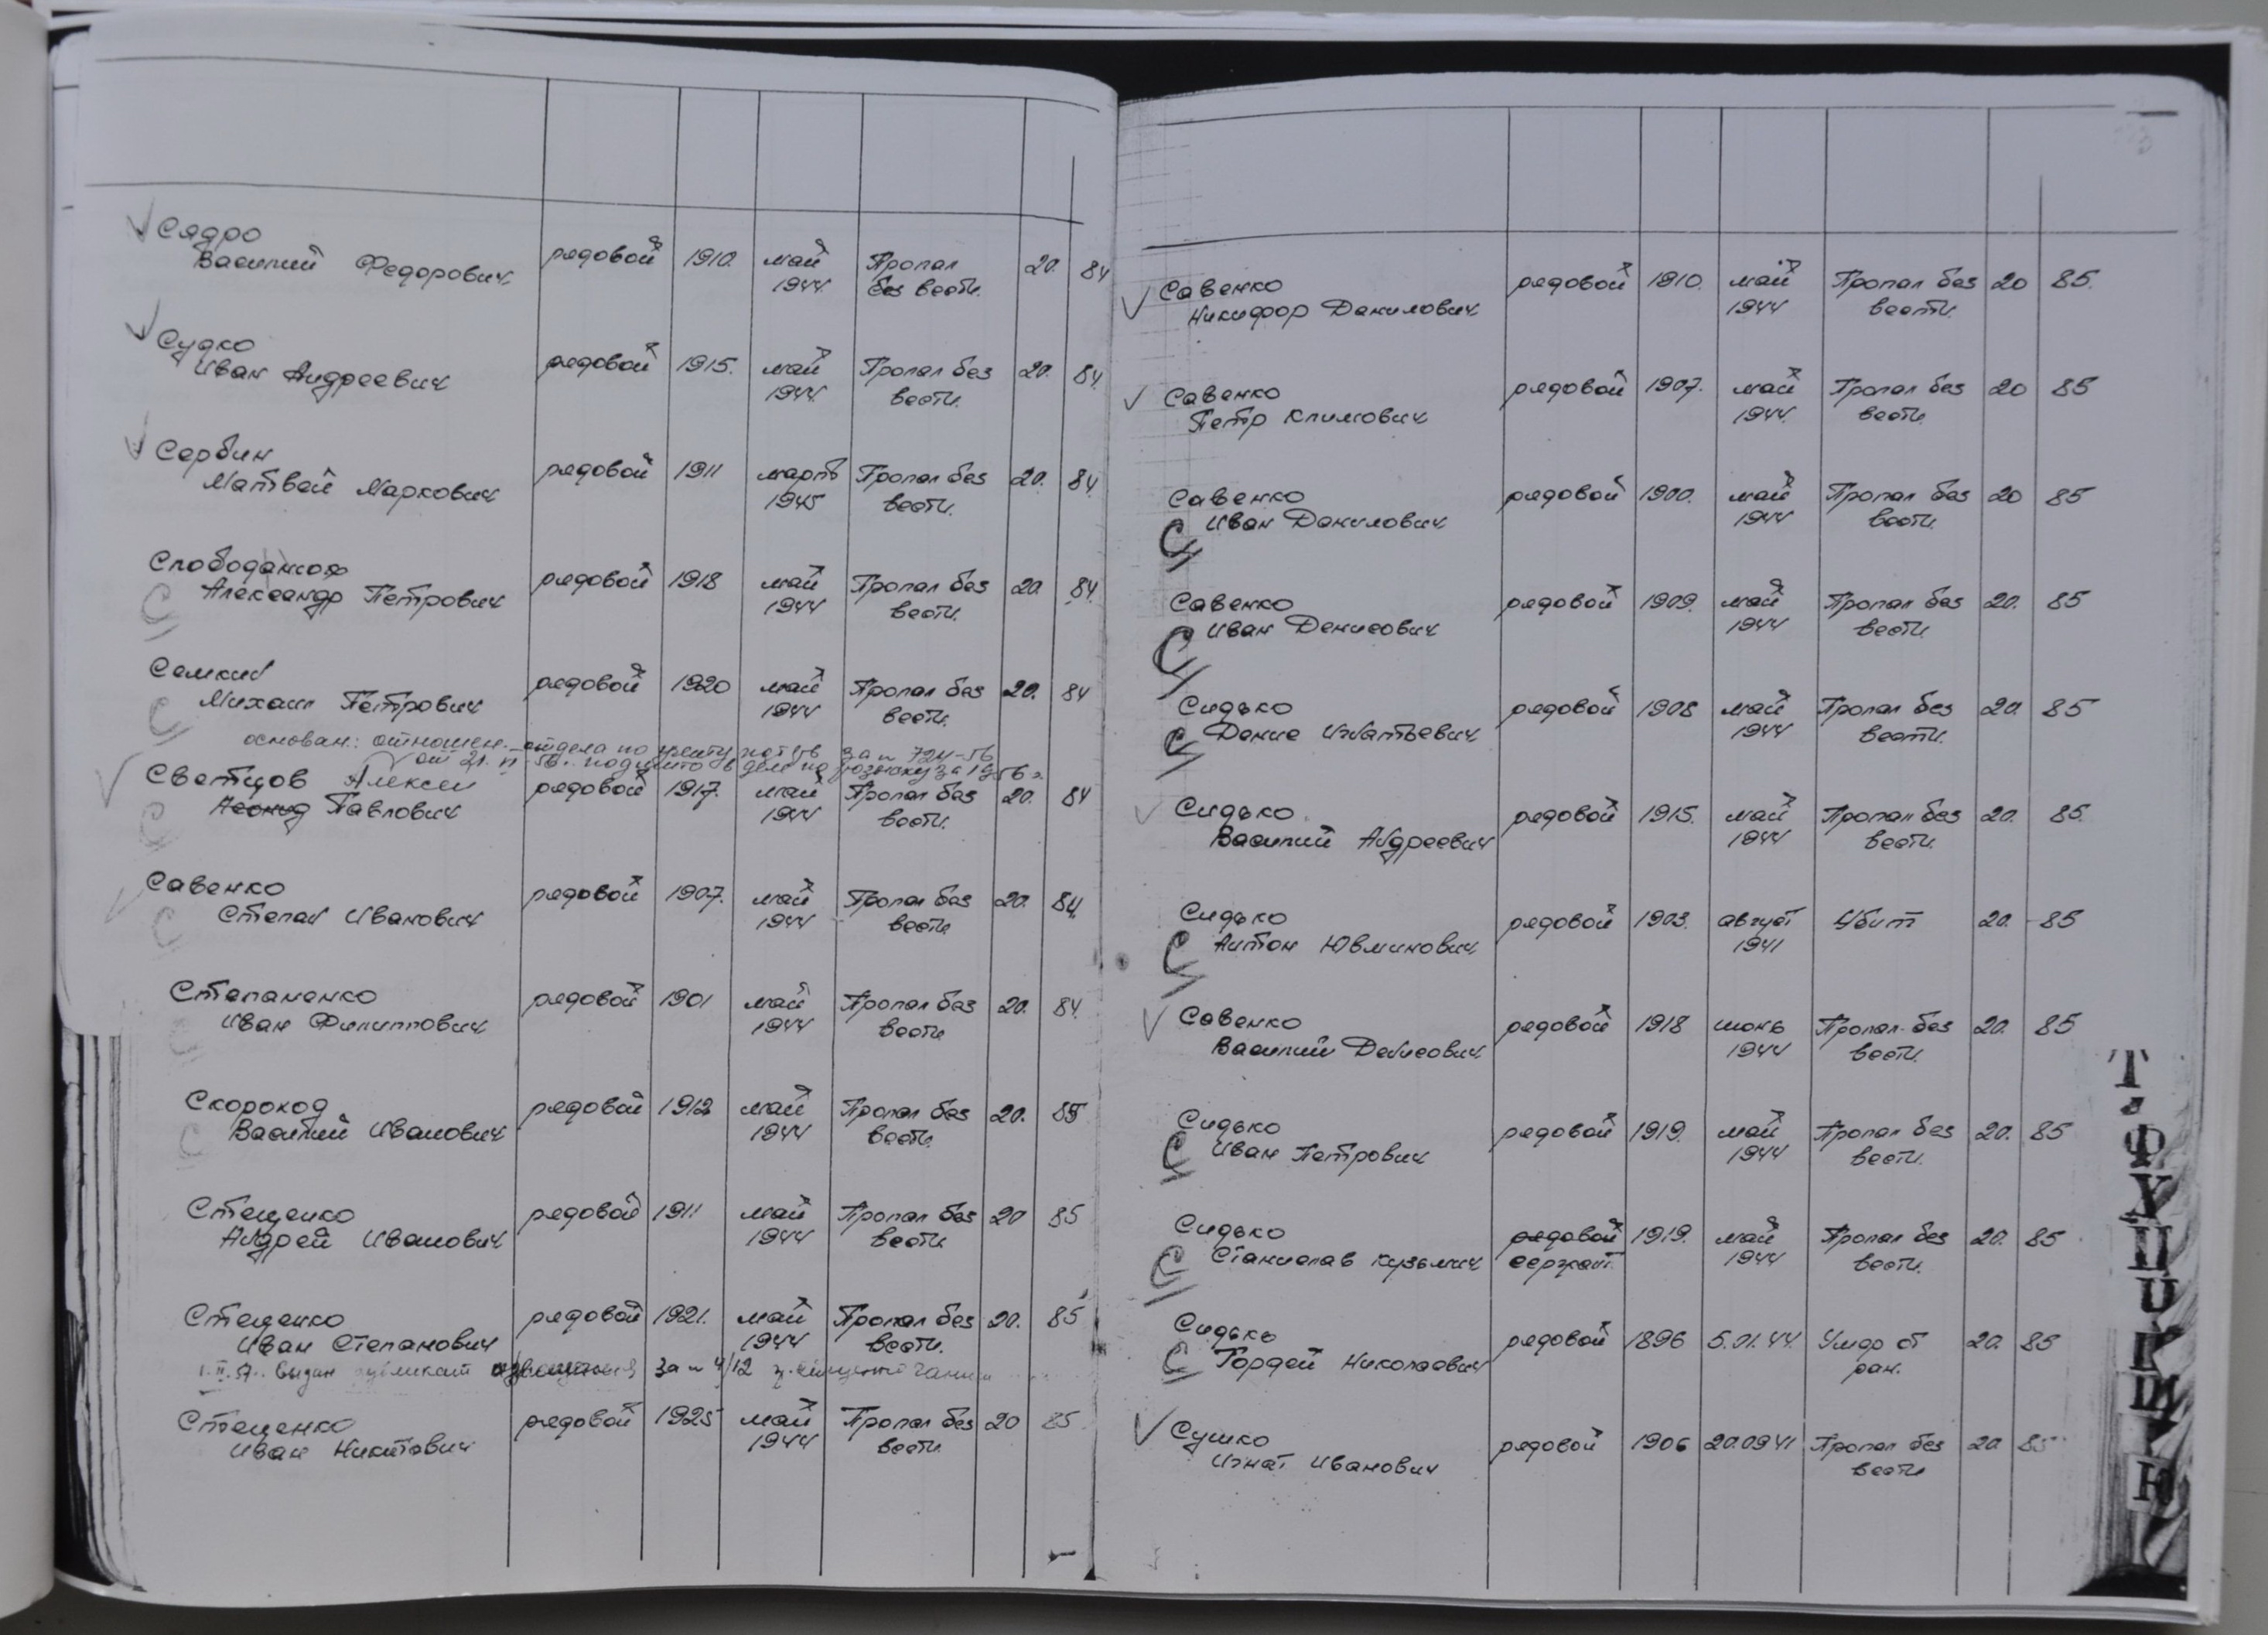 Сядро
Василий Федорович рядовой 1910. май Пропал 20. 84
1944. без вести.
Судко
Иван Андреевич рядовой 1915. май Пропал без 20. 84
1944. вести.
Сербин
Матвей Маркович рядовой 1911 март 1945 Пропал без 20. 84
вести.
Александр Петрович рядовой 1918 май Пропал без 20. 84
1944 вести.
Семкин
Михаил Петрович рядовой 1920 май Пропал без 20. 84
1944 вести.
основан.: отношен. отдела по учету потерь за № 724-56
Светцов Алексей рядовой 1917. май Пропал без 20. 84
Леонид Павлович 1944 вести.
Савенко рядовой 1907. май Пропал без 20. 84
Степан Иванович 1944 вести
Степаненко рядовой 1901 май Пропал без 20. 84
Иван Филиппович 1944 вести
Скороход рядовой 1912 май Пропал без 20. 85
Василий Иванович 1944 вести
Стеценко рядовой 1911 май Пропал без 20 85
Андрей Иванович 1944 вести
Стеценко рядовой 1921. май Пропал без 20. 85
Иван Степанович 1944 вести.
выдан дубликат извещения за № 4/12
Стеценко рядовой 1925 май Пропал без 20 85
Иван Никитович 1944 вести.
Савенко рядовой 1910. май Пропал без 20 85.
Никифор Данилович 1944 вести.
Савенко рядовой 1907. май Пропал без 20 85
Петр Климович 1944. вести.
Савенко рядовой 1900. май Пропал без 20 85
С Иван Данилович 1944 вести.
Савенко рядовой 1909. май Пропал без 20. 85
С Иван Денисович 1944 вести.
Сидько рядовой 1908 май Пропал без 20. 85
С Денис Игнатьевич 1944 вести.
Сидько рядовой 1915. май Пропал без 20. 85.
Василий Андреевич 1944 вести.
Сидько рядовой 1903. август Убит 20. 85
С Антон 1941
Савенко рядовой 1918 июнь Пропал без 20. 85
Василий Денисович 1944 вести.
Сидько рядовой 1919. май Пропал без 20. 85
С Иван Петрович 1944 вести.
Сидько рядовой 1919. май Пропал без 20. 85
С Станислав Кузьмич сержант 1944 вести.
Сидько рядовой 1896 5.01.44. Умер от 20. 85
С Гордей Николаевич ран.
Сушко рядовой 1906 20.09.41 Пропал без 20. 85
Игнат Иванович вести
Т
Ф
Х
Ц
Ю